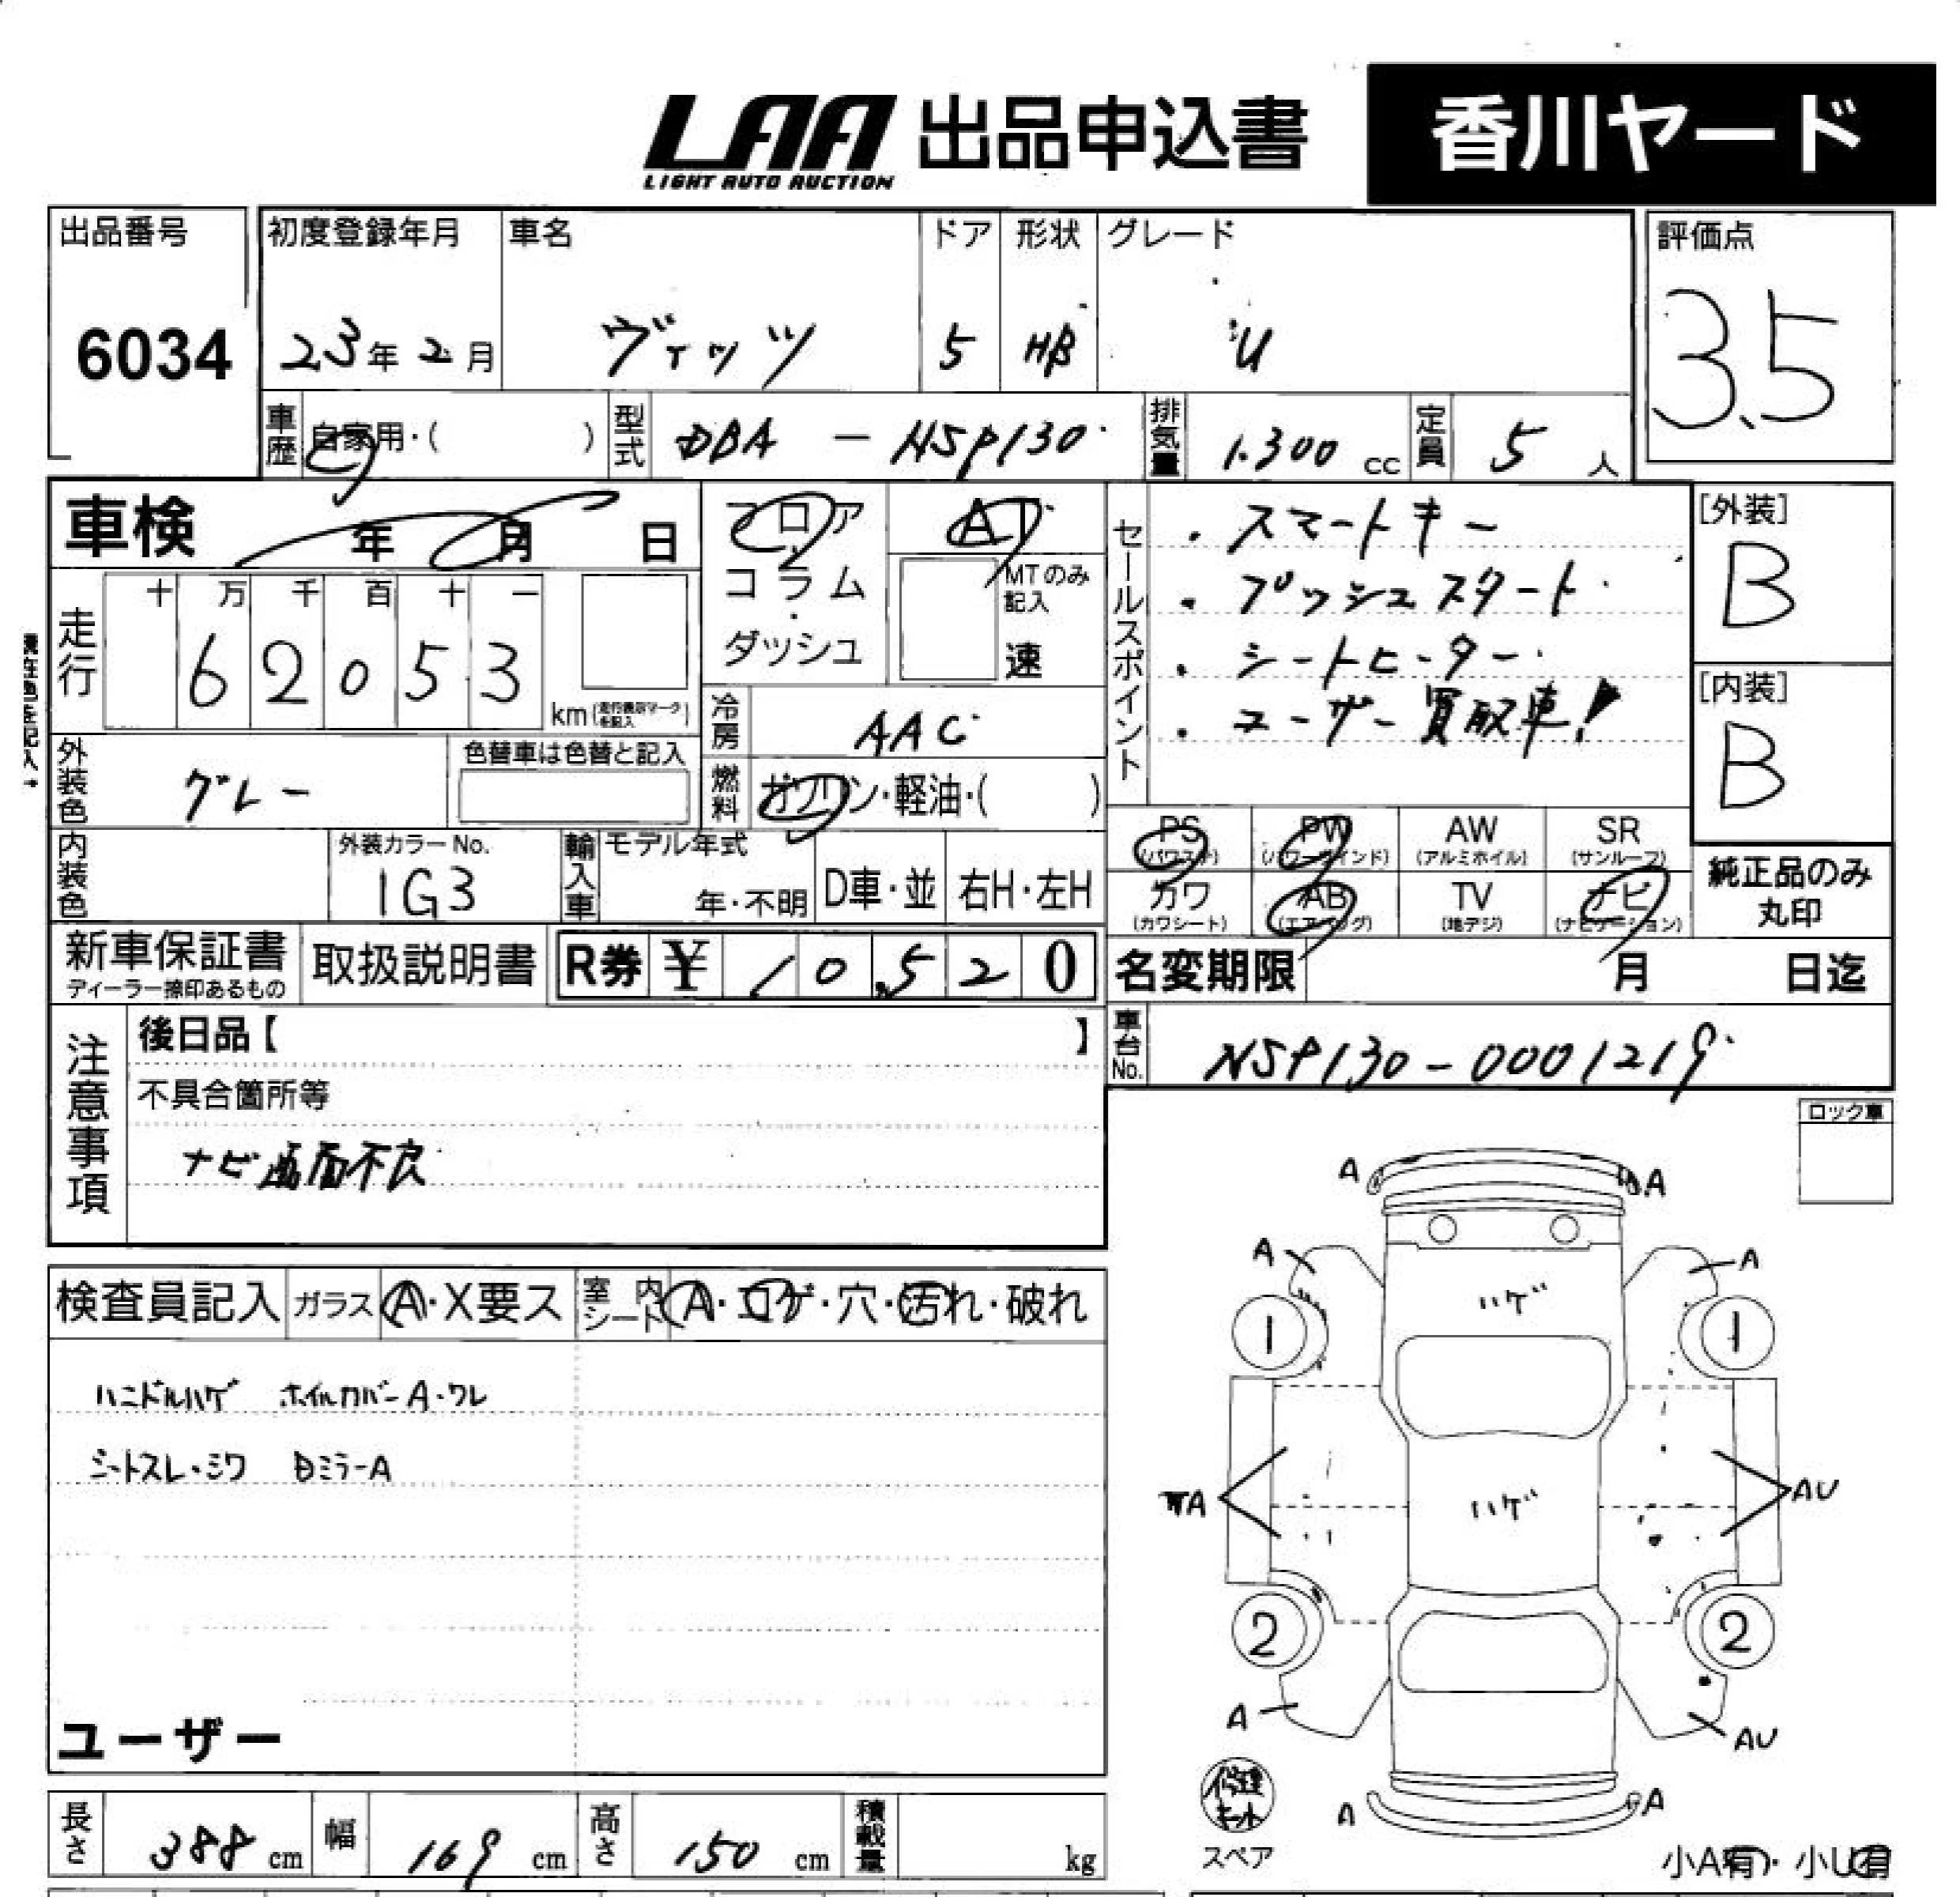 LAA 出品申込書 香川ヤード
LIGHT AUTO AUCTION
出品番号 初度登録年月 車名 ドア 形状 グレード 評価点
6034 23年2月 ヴィッツ 5 HB U 3.5
車歴 自家用・( ) 型式 DBA - NSP130 排気量 1.300 cc 定員 5 人
車検 年 月 日
フロア・コラム・ダッシュ AT
MTのみ記入
速
セールスポイント
・スマートキー
・プッシュスタート
・シートヒーター
・ユーザー買取車!
[外装]
B
[内装]
B
走行 十 万 千 百 十 一
6 2 0 5 3 km (走行表示マークを記入)
現在色を記入→
冷房 AAC
外装色 グレー 色替車は色替と記入
燃料 ガソリン・軽油・( )
PS (パワステ) PW (パワーウインド) AW (アルミホイル) SR (サンルーフ)
カワ (カワシート) AB (エアバッグ) TV (地デジ) ナビ (ナビゲーション)
純正品のみ
丸印
内装色 外装カラーNo. 1G3 輸入車 モデル年式 年・不明 D車・並 右H・左H
新車保証書 ディーラー捺印あるもの 取扱説明書 R券 ¥ 10,520 名変期限 月 日迄
注意事項 後日品【 】 車台No. NSP130-0001219
不具合箇所等
ナビ画面不良
ロック車
検査員記入 ガラス A・X要ス 室内シート A・コゲ・穴・汚れ・破れ
ハンドルハゲ ホイルカバーA・ワレ
シートスレ・シワ Bミラー A
ユーザー
A A
A A
ハゲ
1 1
A AU
ハゲ
2 2
A AU
A A
修理キット
スペア
小A有・小U有
長さ 388 cm 幅 169 cm 高さ 150 cm 積載量 kg